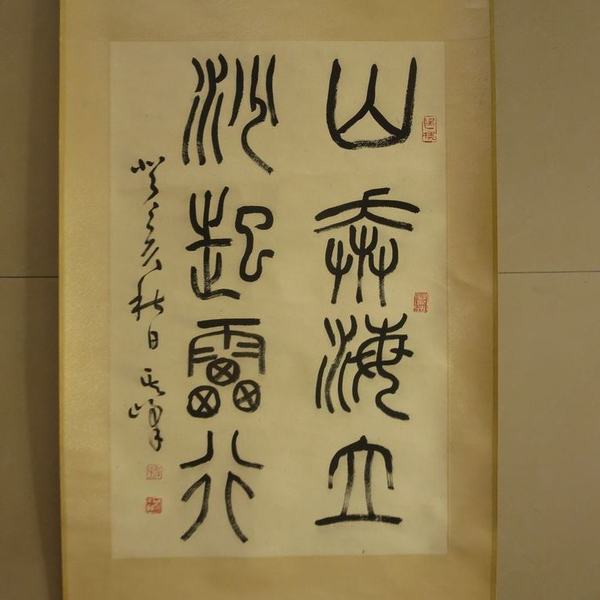 山奔海立
沙起雷行
癸亥秋日